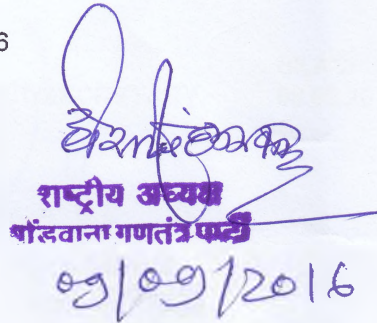 6
राष्ट्रीय अध्यक्ष
गोंडवाना गणतंत्र पार्टी
09/09/2016